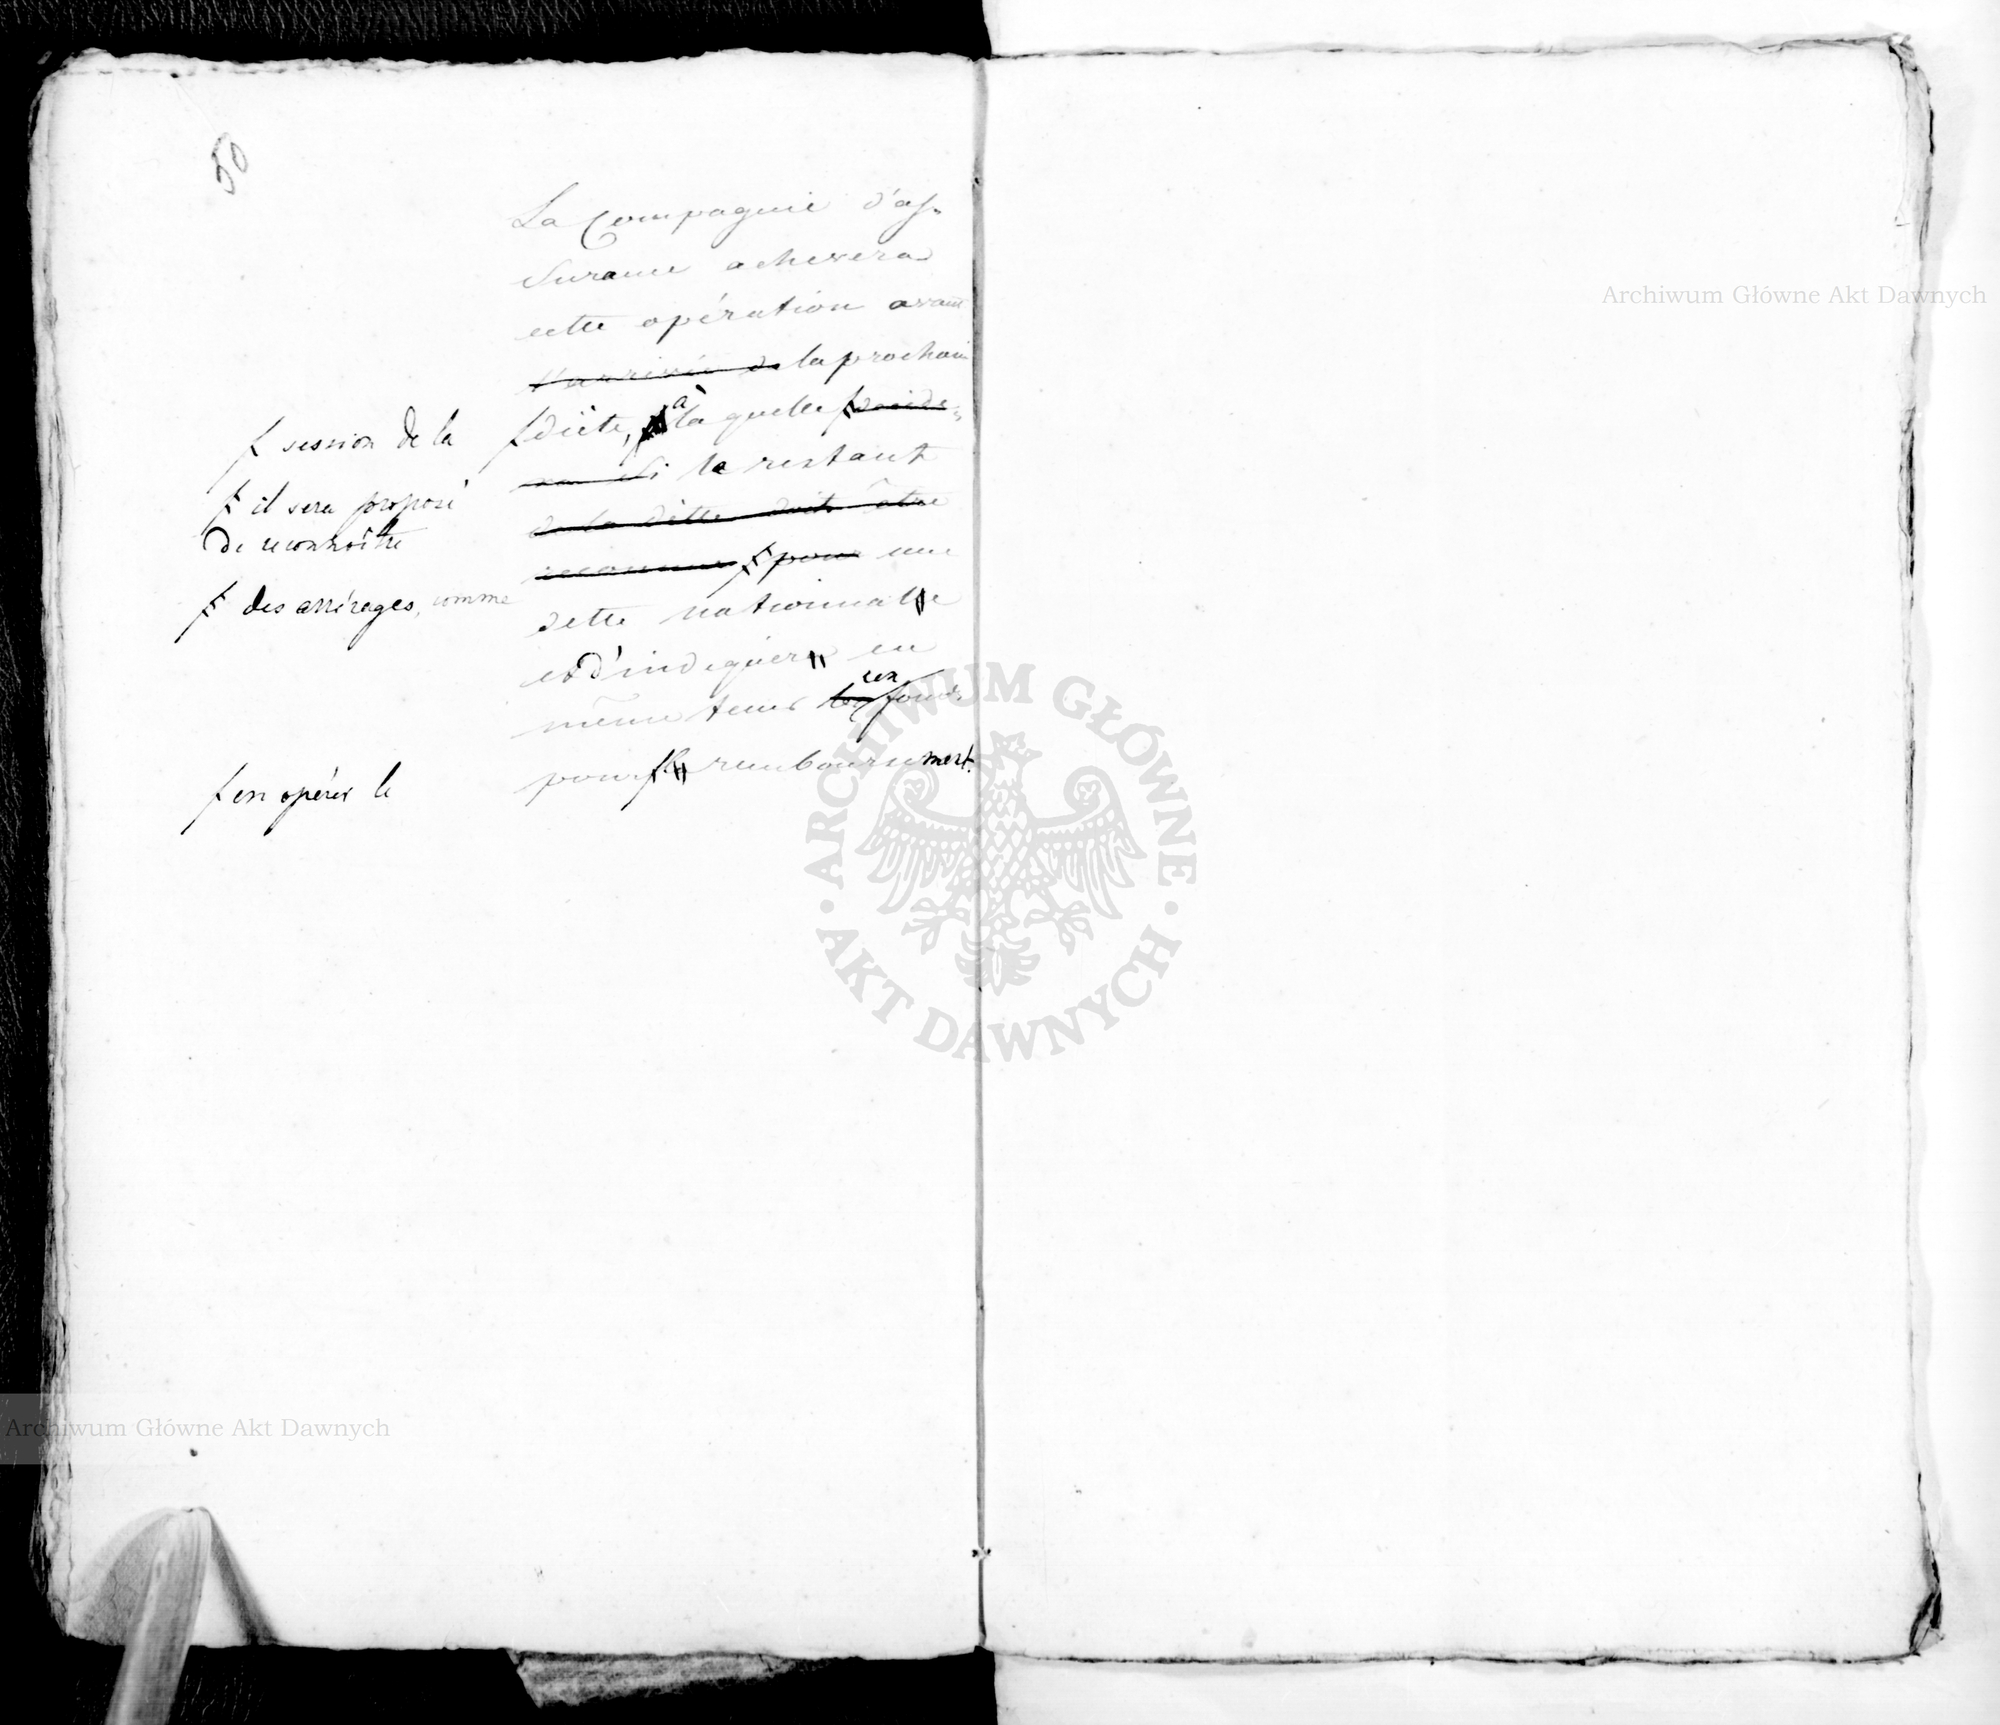 50
La Compagnie d'as-
surance achevera
cette opération avant
l'arrivée de la prochain
ƒ session de la
ƒ diète, à la quelle ƒ decide-
ra si le restant
ƒ il sera proposé
de reconnoître
de la dette doit être
reconnue ƒ pour une
ƒ des arrérages, comme
dette nationnalle
et d'indiquer en
même tems les un fonds
pour ƒ le remboursement.
ƒ en opérer le
Archiwum Główne Akt Dawnych
Archiwum Główne Akt Dawnych
ARCHIWUM GŁÓWNE
• AKT DAWNYCH •